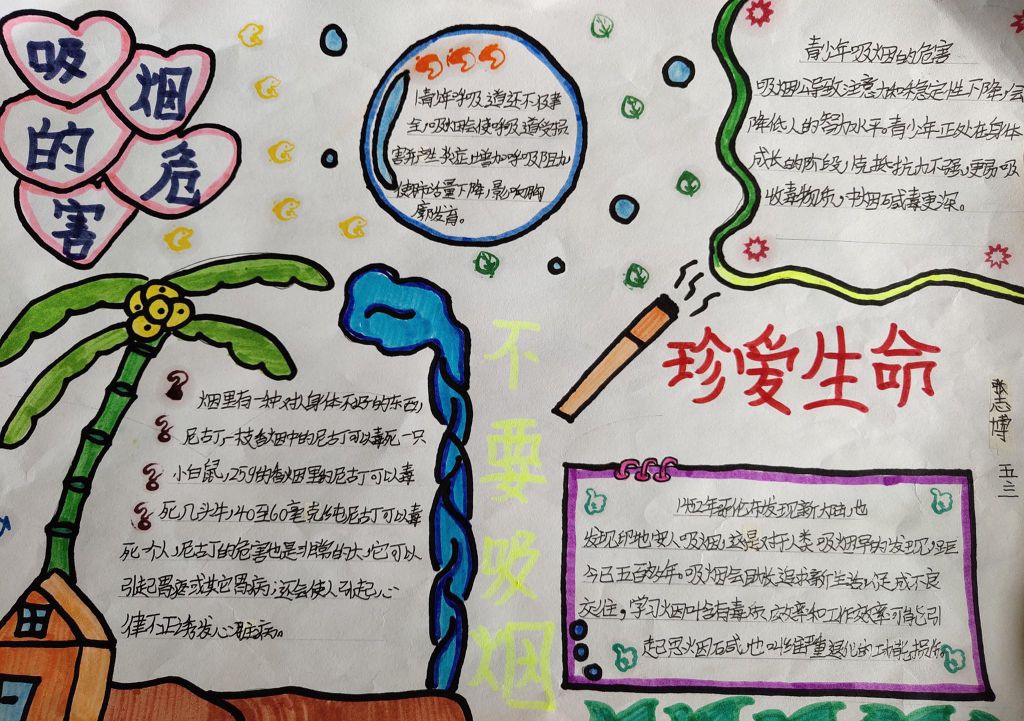 吸烟
的危
害
青少年呼吸道还不够健
全,吸烟会使呼吸道受损
害并产生炎症,增加呼吸阻力,
使肺活量下降,影响胸
廓发育。
青少年吸烟的危害
吸烟导致注意力和稳定性下降,会
降低人的智力水平。青少年正处在身体
成长的阶段,抵抗力不强,更易吸
收毒物质,中烟毒更深。
不要吸烟
珍爱生命
张志博
五三
烟里有一种对人身体不好的东西,
尼古丁,一枝香烟中的尼古丁可以毒死一只
小白鼠,25g的香烟里的尼古丁可以毒
死几头牛,40至60毫克的尼古丁可以毒
死一个人,尼古丁的危害也是非常的大,它可以
引起胃痉或其它胃病;还会使人引起心
律不正,诱发心脏病。
1492年哥伦布发现新大陆,也
发现印地安人吸烟,这是对于人类吸烟早的发现,距
今已五百多年。吸烟会目故追求新生活以足成不良
交往,学习烟叶含有毒质,效率和工作效率可能引
起思烟,也叫严重退化的功能损伤。